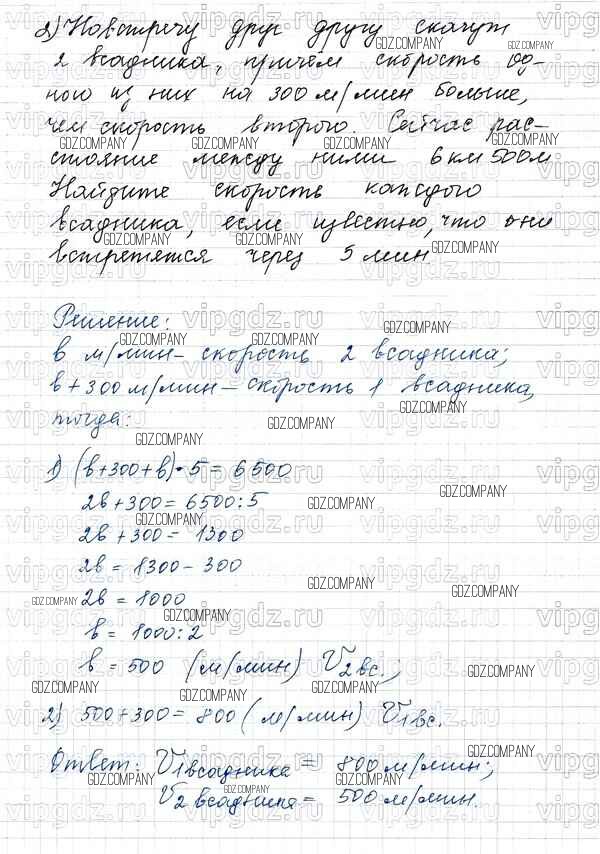 2) Навстречу друг другу скачут
2 всадника, причём скорость од-
ного из них на 300 м/мин больше,
чем скорость второго. Сейчас рас-
стояние между ними 6 км 500 м
Найдите скорость каждого
всадника, если известно, что они
встретятся через 5 мин
Решение:
в м/мин - скорость 2 всадника;
в + 300 м/мин - скорость 1 всадника,
тогда:
1) (в+300+в)·5 = 6500
2в + 300 = 6500:5
2в + 300 = 1300
2в = 1300 - 300
2в = 1000
в = 1000:2
в = 500 (м/мин) V2вс.;
2) 500+300 = 800 (м/мин) V1вс.
Ответ: V1всадника = 800 м/мин;
V2 всадника = 500 м/мин.
vipgdz.ru
GDZ.COMPANY